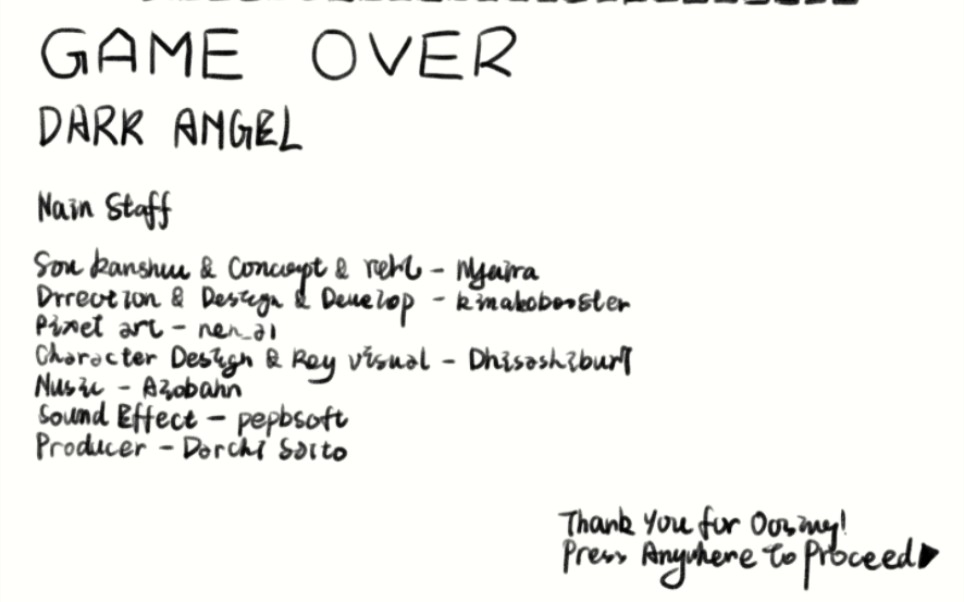 GAME OVER
DARK ANGEL
Nain Staff
Sou kanshuu & Concept & - Nyaira
Drrection & Design & Develop - kinakobooster
Pixel art - nen_ai
Character Design & Key visual - Dhisashiburi
Nusic - Azobahn
Sound Effect - pepbsoft
Producer - Dorchi Saito
Thank You for
Press Anywhere to Proceed▶